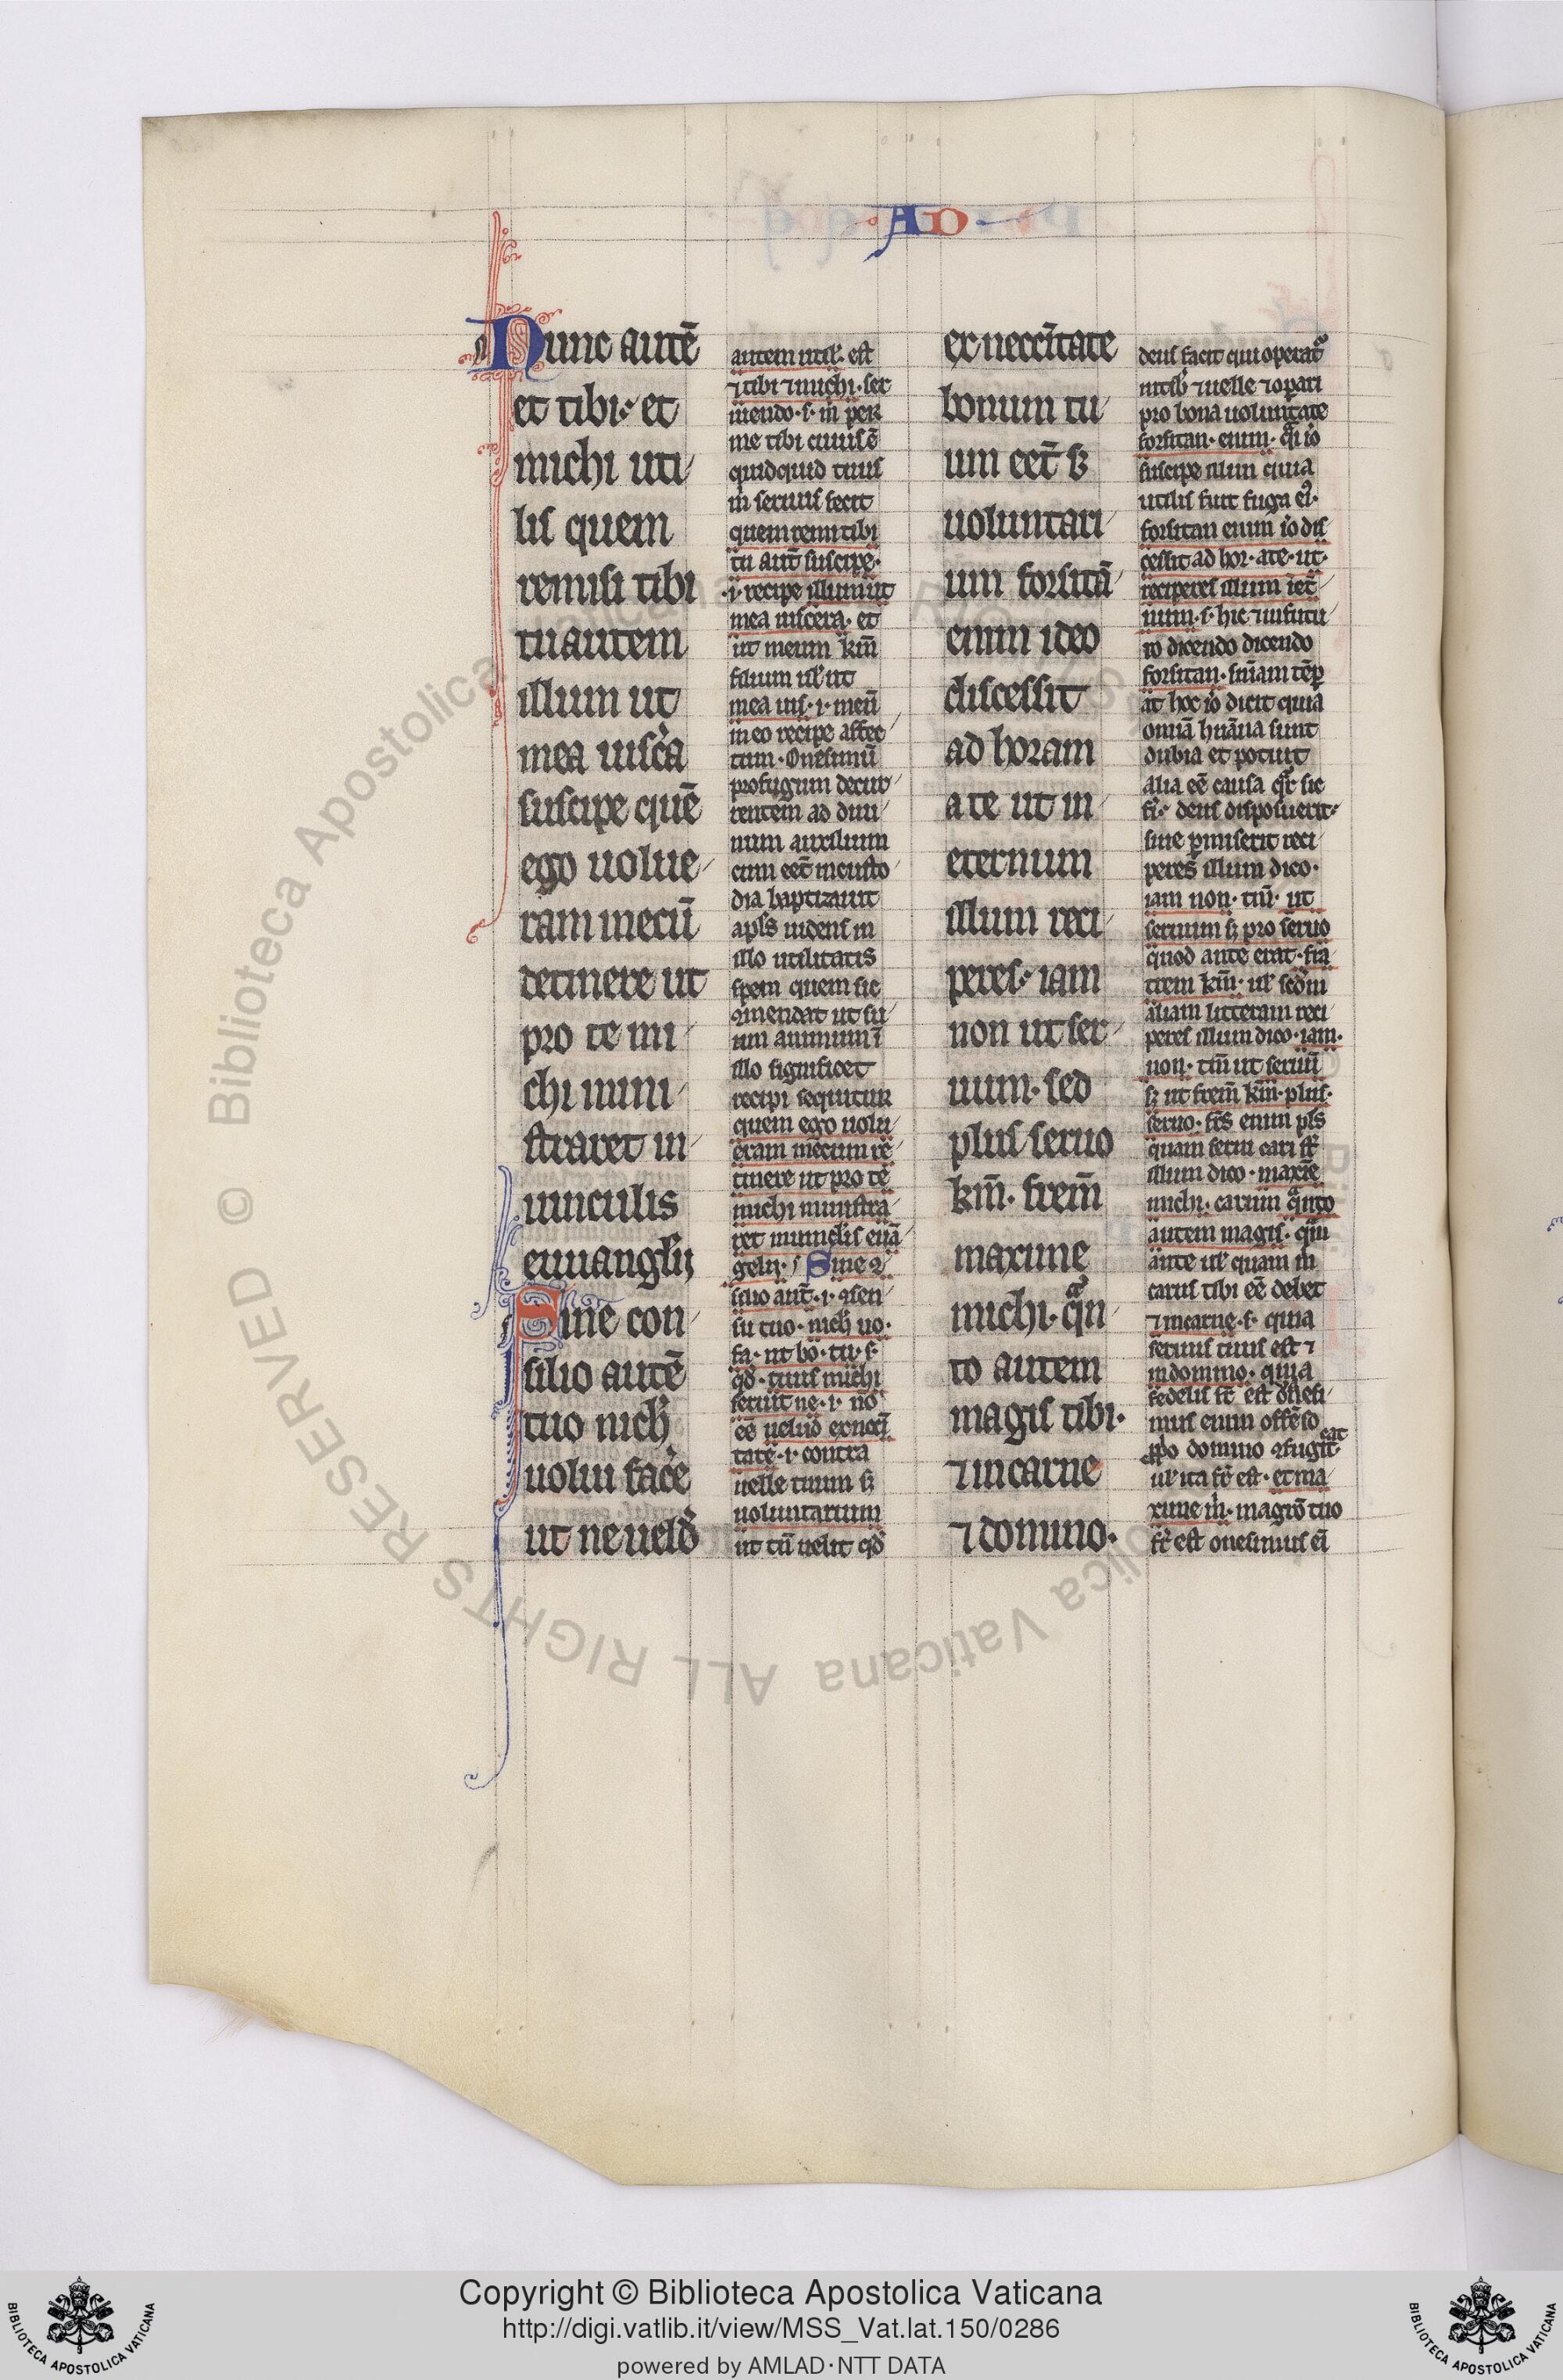 AD
Nunc autē
et tibi· et
michi uti
lis quem
remisi tibi
tu autem
illum ut
mea uisc̄a
suscipe quē
ego uolue
ram mecū
detinere ut
pro te mi
chi mini
straret in
uinculis
euuanglij
Sine con
silio autē
tuo nich̄
uolui fac̄e
ut ne uelđ
autem util̄ est
⁊ tibi ⁊ michi· ser
quidquid tuus
m̄ seruus fecit
quem remi tibi
tu aut̄ suscipe·
·i· recipe illum ut
mea uiscera· et
ut meum km̄
filium ul̄ ut
mea uis·i· meū
in eo recipe affec
tum· Onesimū
profugum decur
rentem ad diui
num auxilium
cum eēt in custo
dia baptizauit
apl̄s uidens in
illo utilitatis
spem quem sic
ꝯmendat ut su
um animum ī
illo significet
recipi sequitur
quem ego uolu
eram mecum re
tinere ut pro te
michi ministra
ret
gelij· Sine ꝯ
silio aut̄·i· ꝯsen
su tuo· nich̄ uo·
fa· ut bo· tu· s·
qđ· tuus michi
seruit ne·i· nō
eē uelud ex necī
tate·i· contra
uelle tuum sꝫ
uoluntarium
ut tū uelit qđ
ex neccītate
bonum tu
um eēt sꝫ
uoluntari
um forsitā
enim ideo
discessit
ad horam
a te ut in
eternum
illum reci
peres· iam
non ut ser
uum· sed
plus seruo
km̄· frem̄
maxime
michi· qn̄
to autem
magis tibi·
⁊ in carne
⁊ domino·
deus facit qui operat̄
in uob̄ ⁊ uelle ⁊ opari
pro bona uoluntate
forsitan· enim· q̄i iō
suscipe illum quia
utilis fuit fuga ei·
forsitan enim iō dis
cessit ad hor· a te· ut·
reciperes illum iet̄
num·s· hic ⁊ in futu
ro dicendo dicendo
at hoc iō dicit quia
om̄ia hūana sunt
dubia et potuit
alia eē causa q̄r sic
fi· deus disposuerit·
siue ꝑmiserit reci
peres illum dico·
iam non· tm̄· ut
seruum sꝫ pro seruo
quod ante erat· fra
trem km̄· ul̄ sedm
aliam litteram reci
peres illum dico· iam·
non· tm̄ ut seruū
sꝫ ut frem̄ km̄· plus·
seruo· frs̄ enim pl̄s
quam serui cari st̄
illum dico· maxīe
michi· carum q̄nto
autem magis· qm̄
ante ul̄ quam m̄
carus tibi eē debet
⁊ in carne·s· quia
seruus tuus est ⁊
in domino· quia
fidelis fr̄ est Onesi
mus enim offēso
domino ꝯfugit
ul̄ ita fr̄ est· et ma
xime m̄· magis tuo
fr̄ est onesimus eī
Biblioteca Apostolica Vaticana ALL RIGHTS RESERVED ©
Copyright © Biblioteca Apostolica Vaticana
http://digi.vatlib.it/view/MSS_Vat.lat.150/0286
powered by AMLAD·NTT DATA
BIBLIOTECA APOSTOLICA VATICANA
BIBLIOTECA APOSTOLICA VATICANA